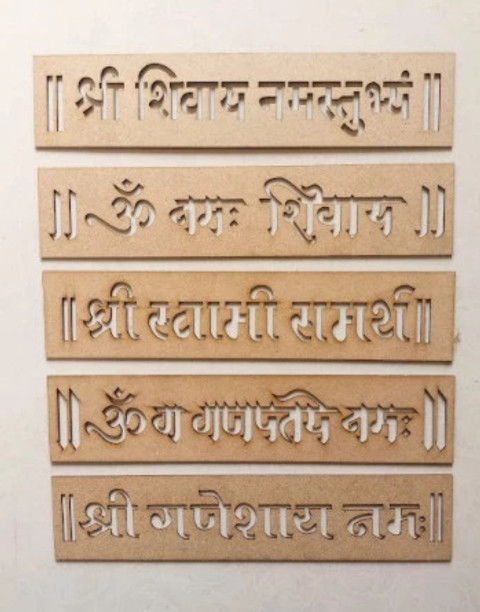 ॥ श्री शिवाय नमस्तुभ्यं ॥
॥ ॐ नमः शिवाय ॥
॥ श्री स्वामी समर्थ ॥
॥ ॐ ग गणपतये नमः ॥
॥ श्री गणेशाय नमः ॥